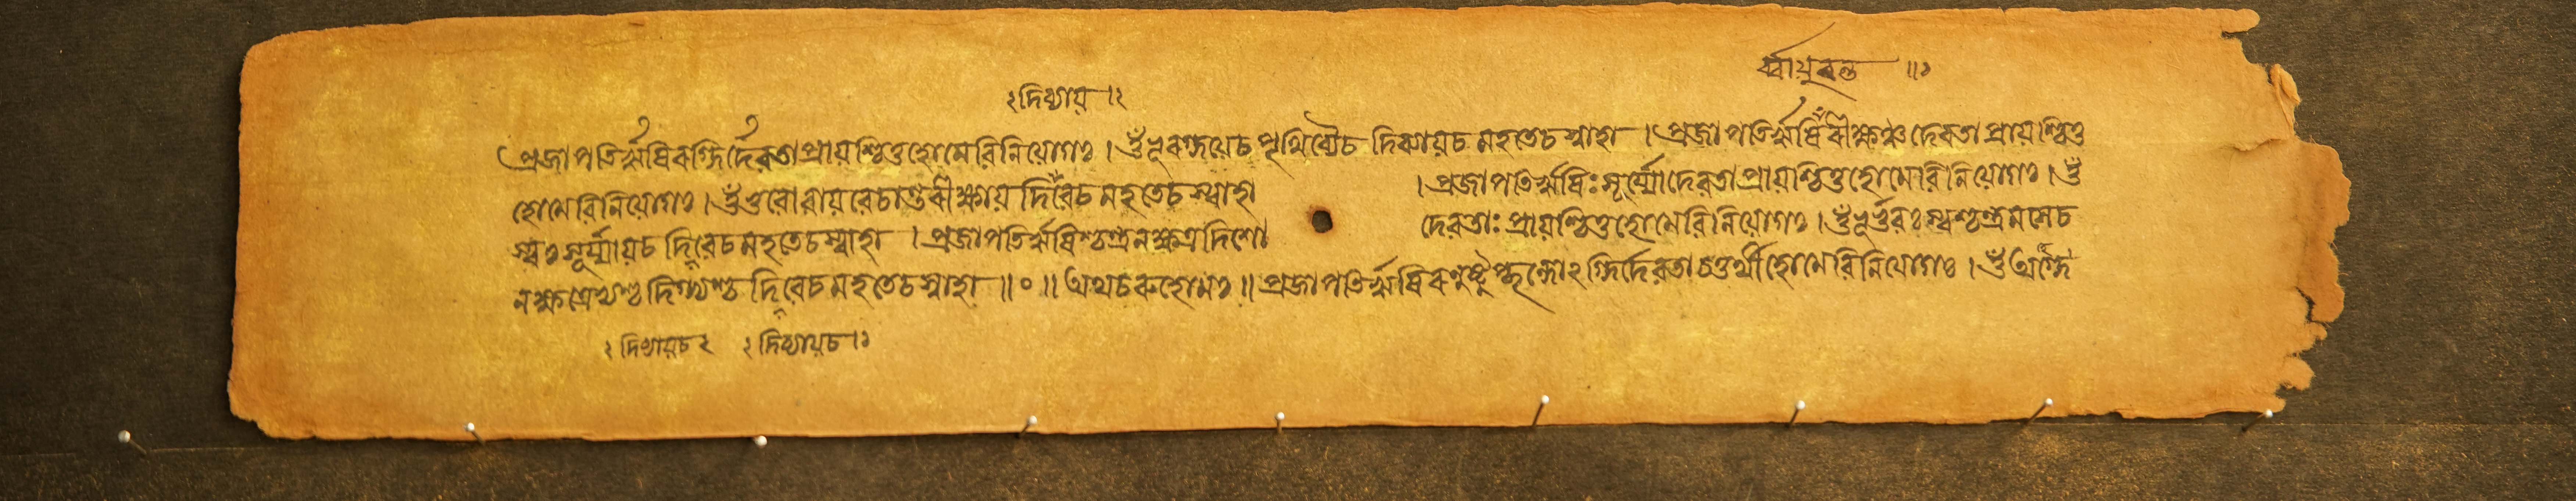 র্ব্বায়ুবন্ত ॥১
২দিব্যায়।২
প্রজাপতিরৃষিরগ্নির্দেবতাপ্রায়শ্চিত্তহোমেবিনিয়োগঃ। ওঁভূরগ্নয়েচ পৃথিব্যৈচ দিব্যায়চ মহতেচ স্বাহা । প্রজাপতিরৃষি দেবতা প্রায়শ্চিত্ত
হোমেবিনিয়োগঃ। ওঁভুবোবায়বেচান্তরীক্ষায় দিবেচ মহতেচ স্বাহা । প্রজাপতিরৃষিঃ সূর্য্যোদেবতাপ্রায়শ্চিত্তহোমেবিনিয়োগঃ। ওঁ
স্বঃ সূর্য্যায়চ দিবেচ মহতেচ স্বাহা । প্রজাপতিরৃষিশ্চন্দ্রনক্ষত্রদিশো দেবতাঃ প্রায়শ্চিত্তহোমেবিনিয়োগঃ। ওঁভূর্ভুবঃ স্বশ্চন্দ্রমসেচ
নক্ষত্রেভ্যশ্চ দিগ্ভ্যশ্চ দিবেচ মহতেচ স্বাহা ॥०॥ অথচরুহোমঃ॥ প্রজাপতিরৃষিরনুষ্টুপ্ছন্দোঽগ্নির্দেবতা চতুর্থীহোমেবিনিয়োগঃ। ওঁ অগ্নে
২ দিব্যায়চ২ ২ দিব্যায়চ।২